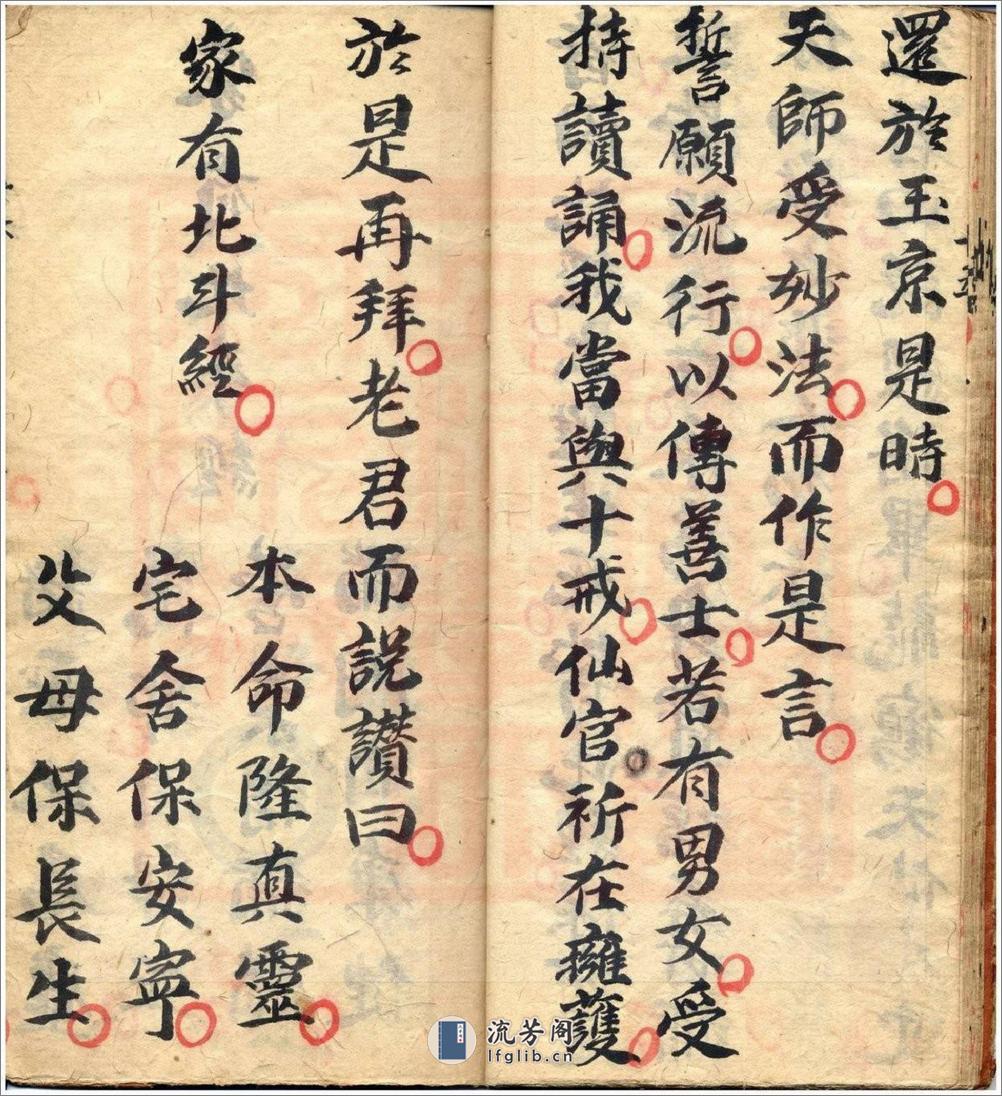 還於玉京是時
天師受妙法而作是言
誓願流行以傳善士若有男女受
持讀誦我當與十戒仙官祈在擁護
於是再拜老君而說讚曰
家有北斗經
本命隆真靈
宅舍保安寧
父母保長生
流芳阁
lfglib.cn